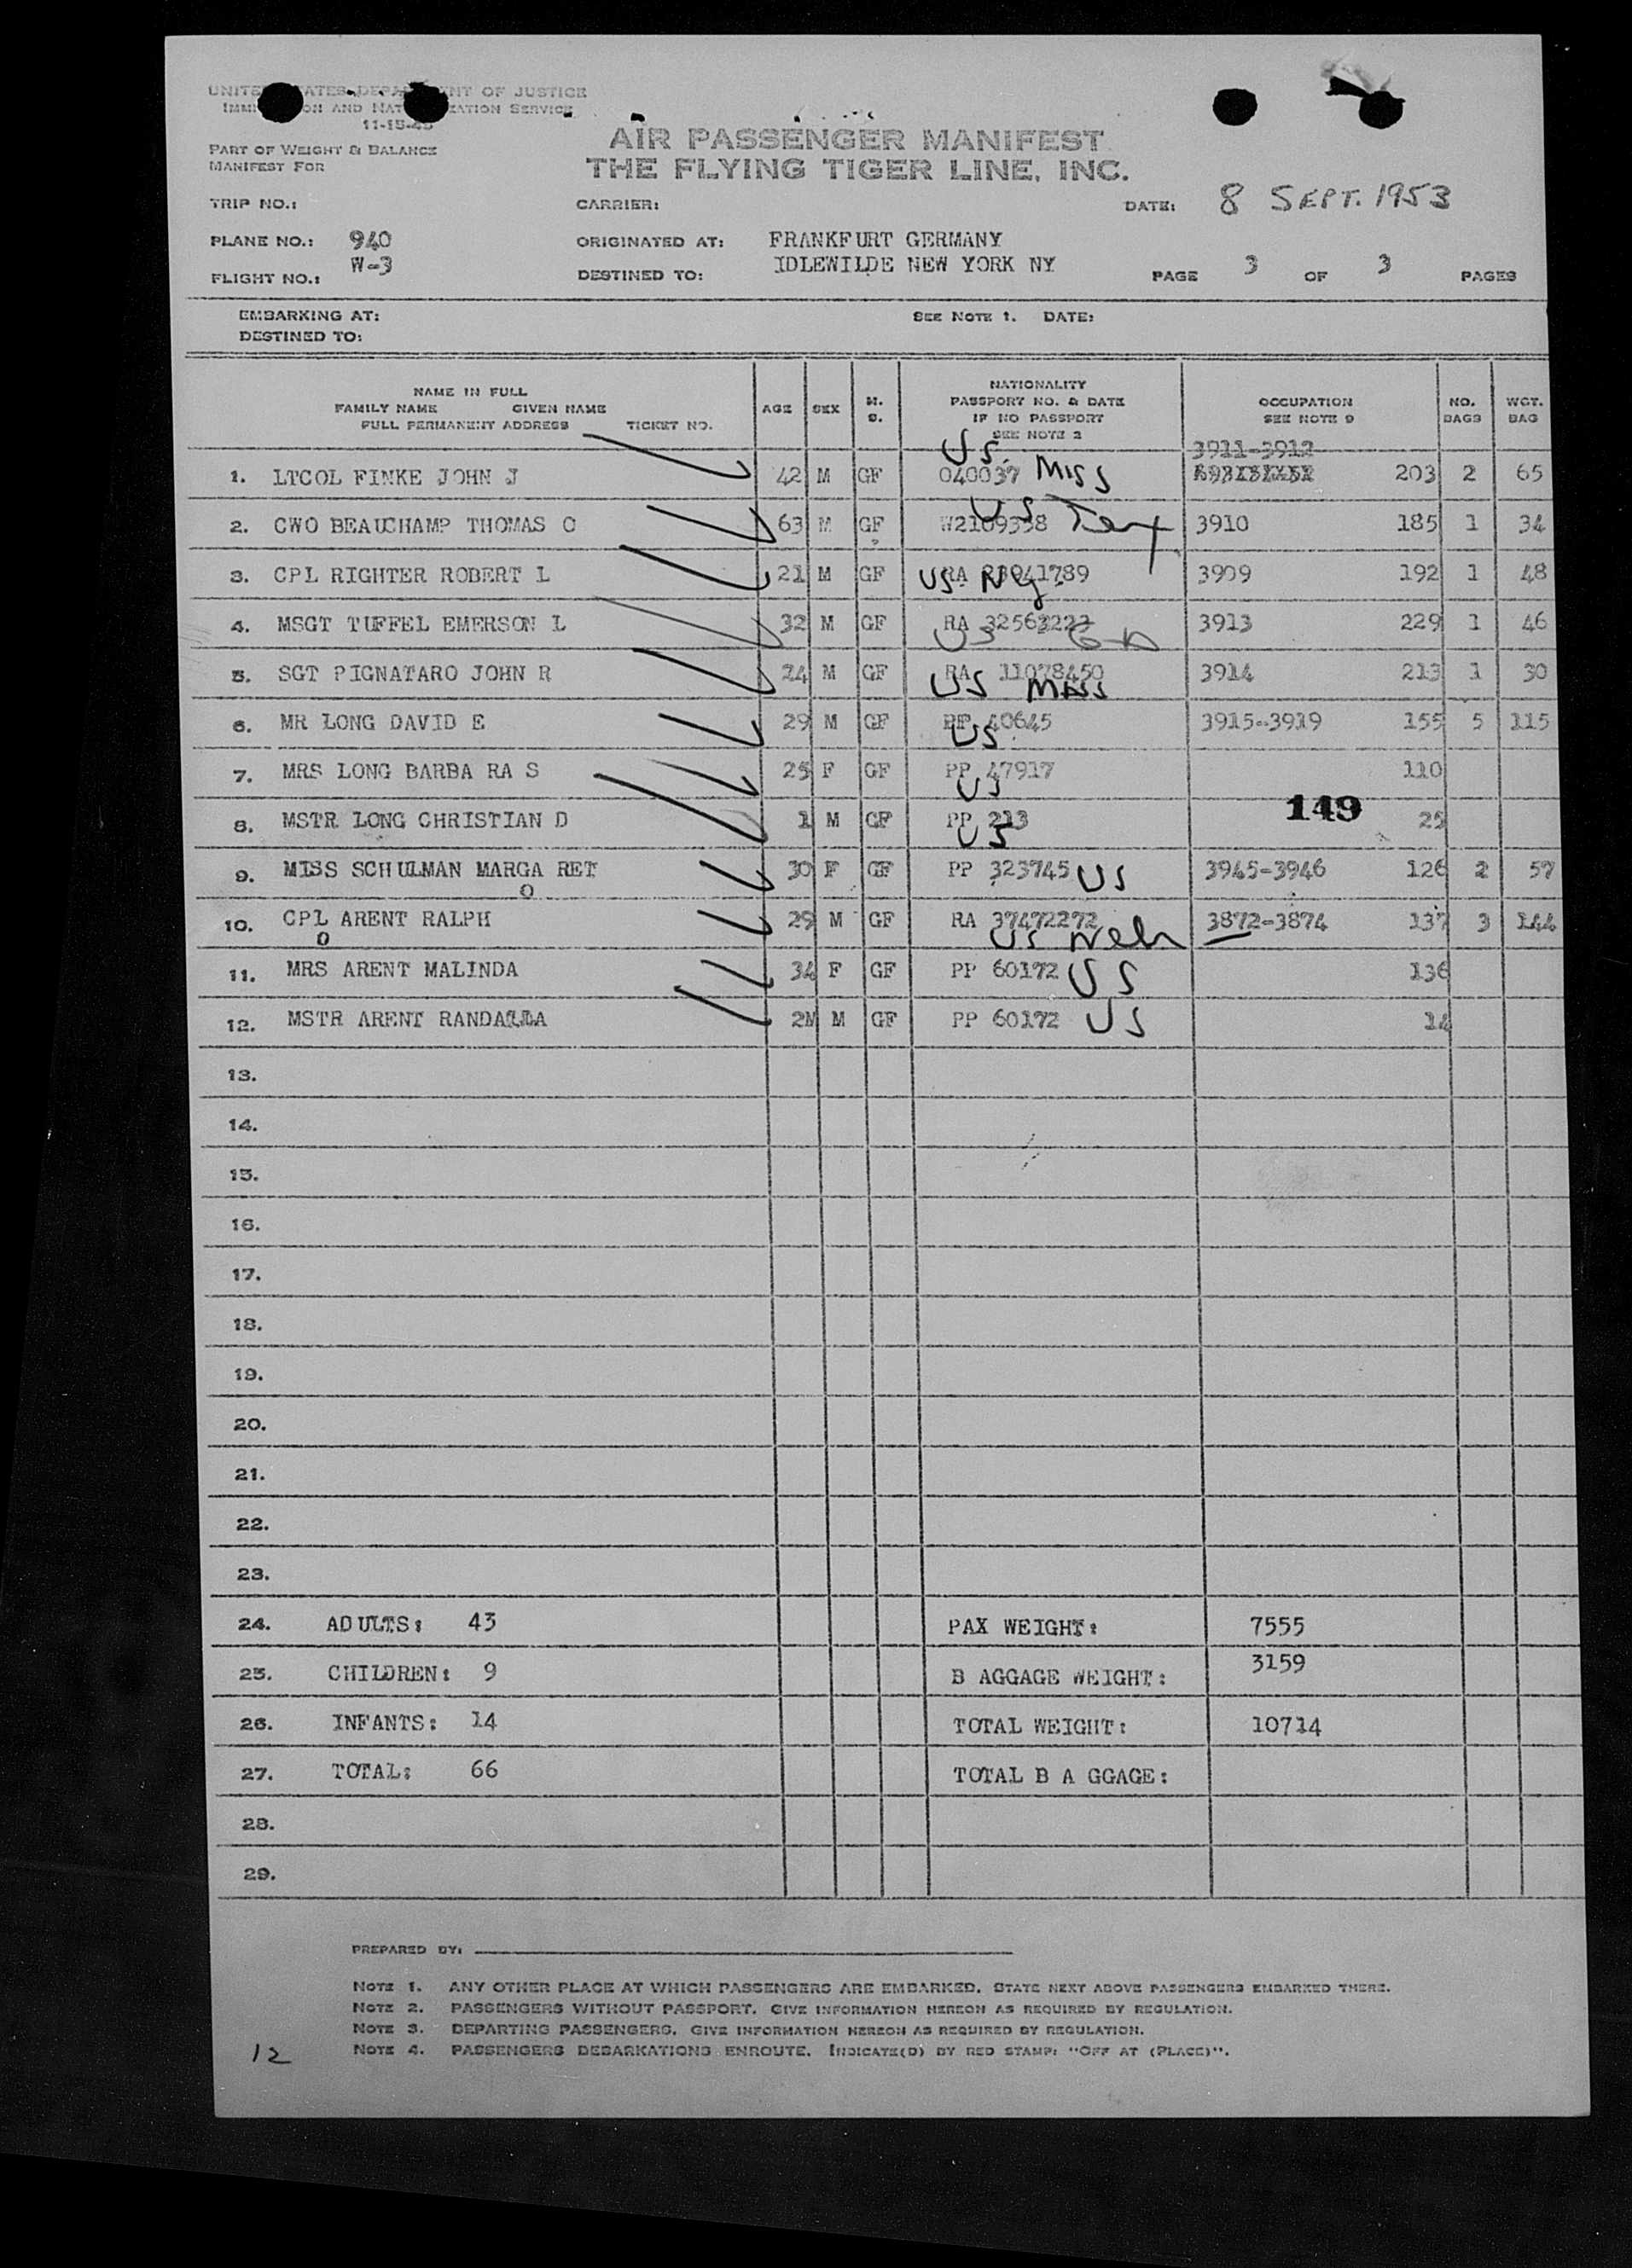 UNITED STATES DEPARTMENT OF JUSTICE
IMMIGRATION AND NATURALIZATION SERVICE
11-15-45
PART OF WEIGHT & BALANCE
MANIFEST FOR
AIR PASSENGER MANIFEST
THE FLYING TIGER LINE, INC.
TRIP NO.: CARRIER: DATE: 8 SEPT. 1953
PLANE NO.: 940 ORIGINATED AT: FRANKFURT GERMANY
FLIGHT NO.: W-3 DESTINED TO: IDLEWILDE NEW YORK NY PAGE 3 OF 3 PAGES
EMBARKING AT: SEE NOTE 1. DATE:
DESTINED TO:
NAME IN FULL
FAMILY NAME GIVEN NAME
FULL PERMANENT ADDRESS TICKET NO.
AGE SEX M. S.
NATIONALITY
PASSPORT NO. & DATE
IF NO PASSPORT
SEE NOTE 2
OCCUPATION
SEE NOTE 9
NO. BAGS
WGT. BAG
US. 3911-3912
1. LTCOL FINKE JOHN J 42 M GF 040037 Miss 203 2 65
2. CWO BEAUCHAMP THOMAS C 63 M GF W2109358 US Tex 3910 185 1 34
3. CPL RIGHTER ROBERT L 21 M GF RA 23941789 US. Ny 3909 192 1 48
4. MSGT TUFFEL EMERSON L 32 M GF RA 32563223 US 3913 229 1 46
5. SGT PIGNATARO JOHN R 24 M GF RA 11078450 US Mass 3914 213 1 30
6. MR LONG DAVID E 29 M GF PP 40645 US 3915-3919 155 5 115
7. MRS LONG BARBA RA S 25 F GF PP 47917 US 110
8. MSTR LONG CHRISTIAN D 1 M GF PP 213 US 149 25
9. MISS SCHULMAN MARGA RET 30 F GF PP 323745 US 3945-3946 126 2 57
O
10. CPL ARENT RALPH 29 M GF RA 37472272 US Neb 3872-3874 137 3 144
O
11. MRS ARENT MALINDA 34 F GF PP 60172 US 136
12. MSTR ARENT RANDALLA 2M M GF PP 60172 US 14
13.
14.
15.
16.
17.
18.
19.
20.
21.
22.
23.
24. ADULTS: 43 PAX WEIGHT: 7555
25. CHILDREN: 9 B AGGAGE WEIGHT: 3159
26. INFANTS: 14 TOTAL WEIGHT: 10714
27. TOTAL: 66 TOTAL B A GGAGE:
28.
29.
PREPARED BY:
NOTE 1. ANY OTHER PLACE AT WHICH PASSENGERS ARE EMBARKED. STATE NEXT ABOVE PASSENGERS EMBARKED THERE.
NOTE 2. PASSENGERS WITHOUT PASSPORT. GIVE INFORMATION HEREON AS REQUIRED BY REGULATION.
NOTE 3. DEPARTING PASSENGERS. GIVE INFORMATION HEREON AS REQUIRED BY REGULATION.
NOTE 4. PASSENGERS DEBARKATIONS ENROUTE. INDICATE(D) BY RED STAMP: "OFF AT (PLACE)".
12